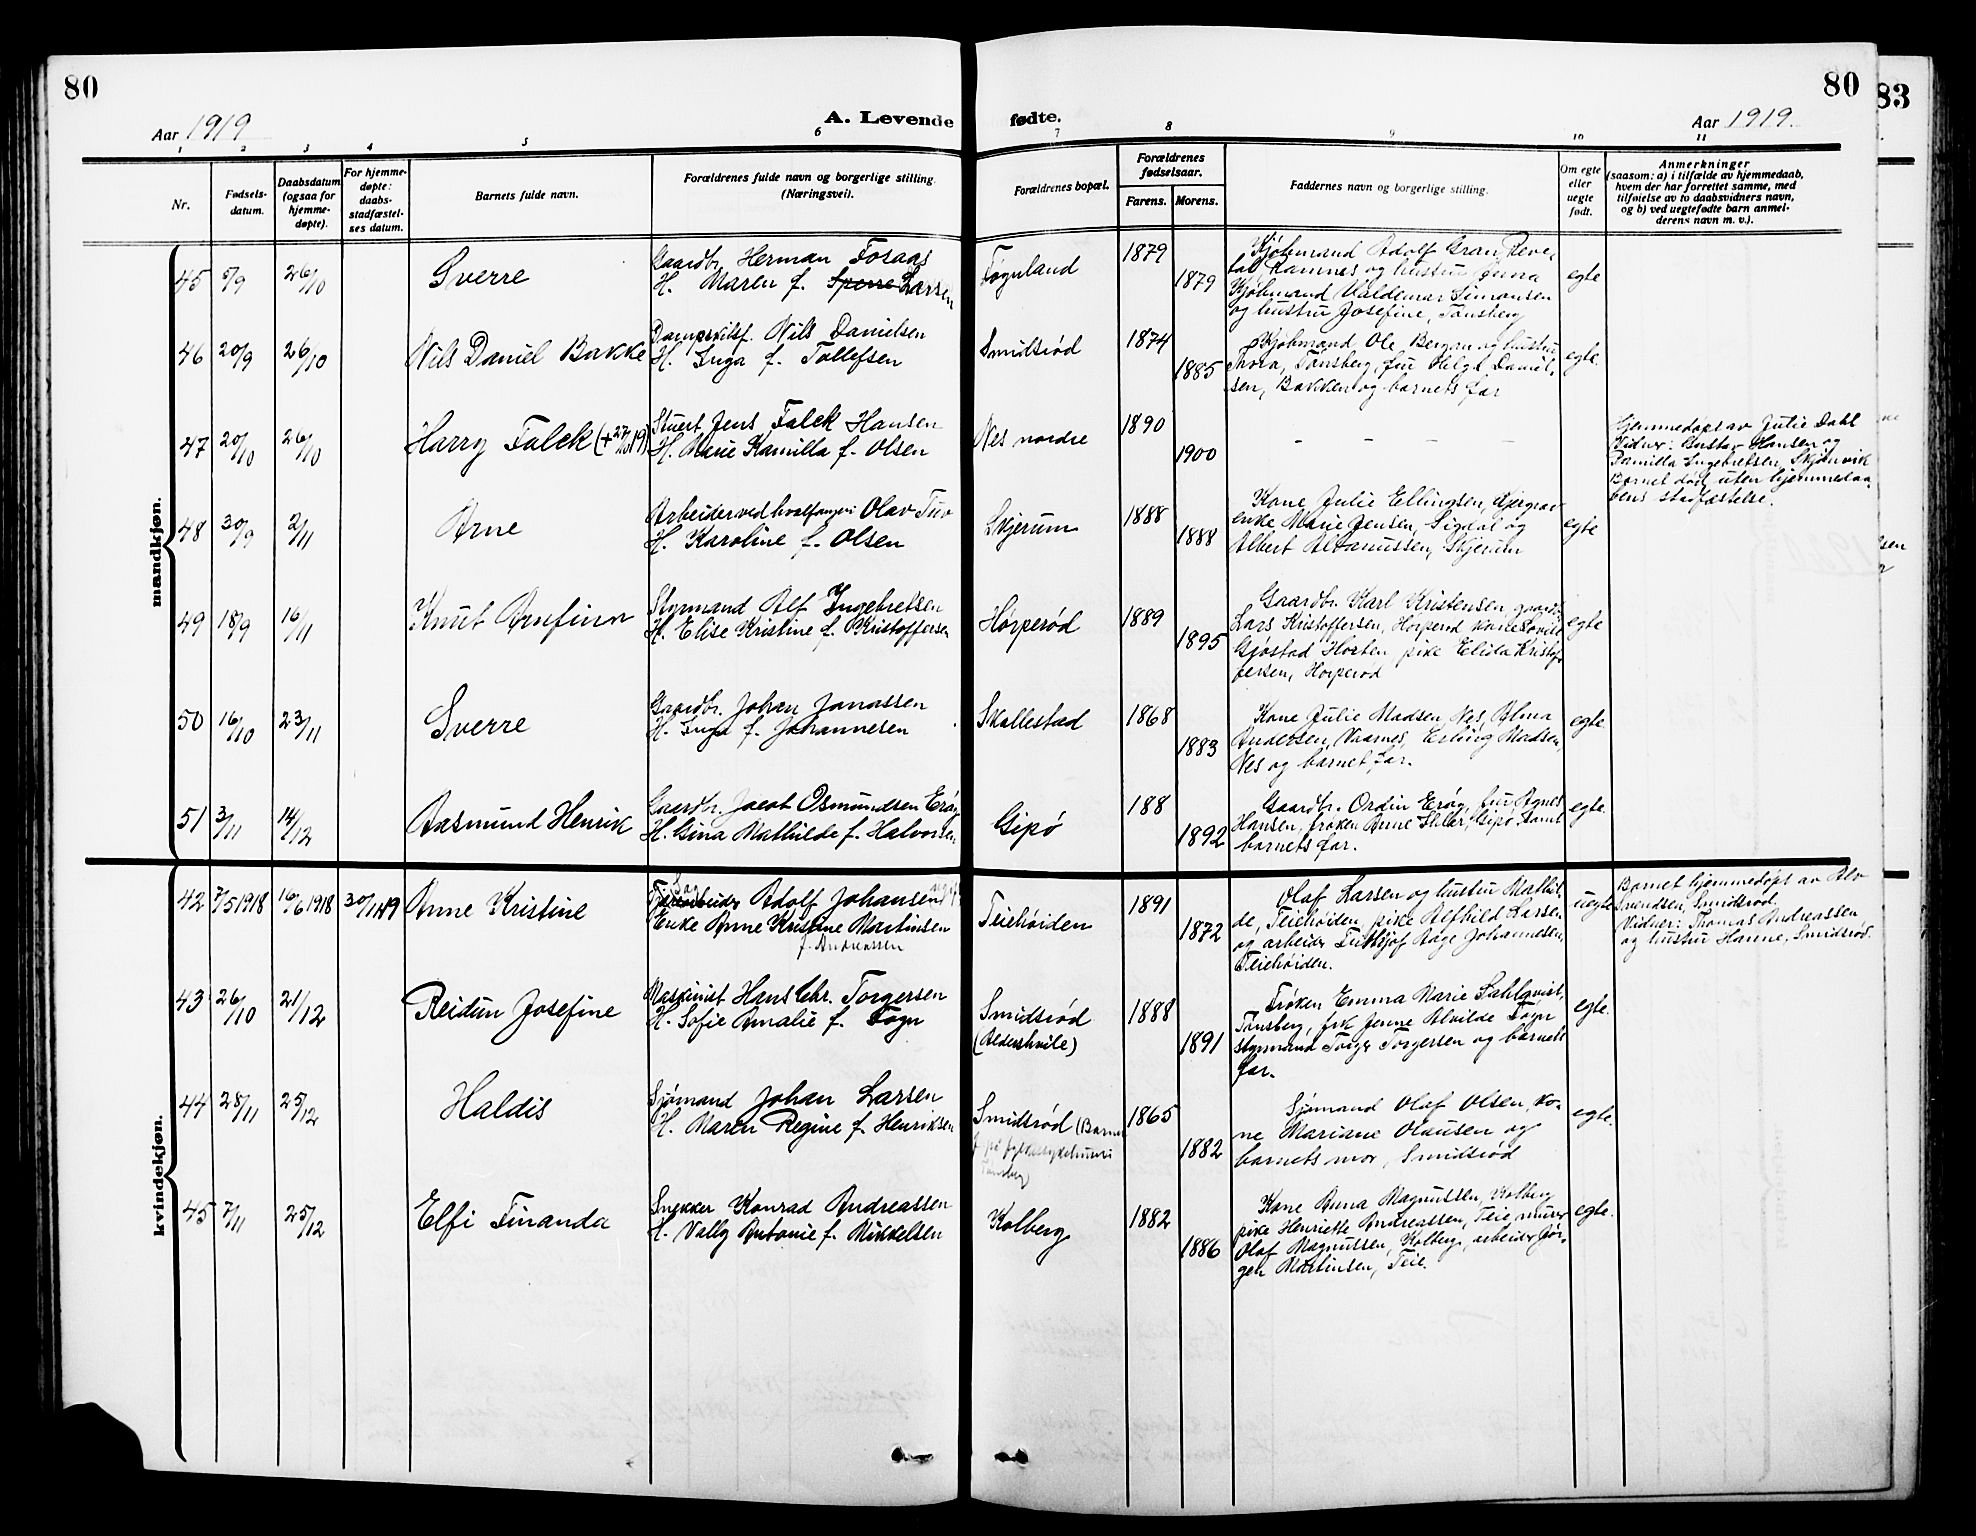 80
80
83
Aar 1919
A. Levende
fødte.
Aar 1919.
1
2
3
4
5
6
7
8
9
10
11
Nr.
Fødsels-
datum.
Daabsdatum
(ogsaa for
hjemme-
døpte).
For hjemme-
døpte:
daabs-
stadfæstel-
ses datum.
Barnets fulde navn.
Forældrenes fulde navn og borgerlige stilling.
(Næringsvei).
Forældrenes bopæl.
Forældrenes
fødselsaar.
Farens.
Morens.
Faddernes navn og borgerlige stilling.
Om egte
eller
uegte
født.
Anmerkninger
(saasom: a) i tilfælde av hjemmedaab,
hvem der har forrettet samme, med
tilføielse av to daabsvidners navn,
og b) ved uegtefødte barn anmel-
derens navn m. v.).
mandkjøn.
45
5/9
26/10
Sverre
Gaardbr. Herman Fosaas
H. Maren f. Larsen
Føgnland
1879
1879
Kjøbmand Adolf Gran, Reve-
tal, Ramnes og hustru Anna
Kjøbmand Valdemar Simonsen
og hustru Josefine, Tønsberg
egte
46
20/9
26/10
Nils Daniel Bakke
Dampskibsf. Nils Danielsen
H. Inga f. Tollefsen
Smidsrød
1874
1885
Kjøbmand Ole Bergan og hustru
Thora, Tønsberg, fru Helga Daniel-
sen, Bakken og barnets far
egte.
47
20/10
26/10
Harry Falck (+27/10 19)
Stuert Jens Falck Hansen
H. Marie Kamilla f. Olsen
Nes nordre
1890
1900
- - - -
Hjemmedøpt av Julie Dahl
Vidner: Gustav Hansen og
Kamilla Ingebretsen, Skjønvik
Barnet død uten hjemmedaa-
bens stadfæstelse.
48
30/9
2/11
Arne
Arbeider ved hvalfangeri Olav Tuv
H. Karoline f. Olsen
Skjerum
1888
1888
Kone Julie Ellingsen, Kjergaar
enke Marie Jensen, Sigdal og
Albert Asmussen, Skjerum
egte
49
18/9
16/11
Knut Arnfinn
Styrmand Alf Ingebretsen
H. Elise Kristine f. Kristoffersen
Hørperød
1889
1895
Gaardbr. Karl Kristensen, gaardbr.
Lars Kristoffersen, Horperød kone Lovise
Gjøstad Horten, pike Elida Kristof-
fersen, Horperød
egte
50
16/10
23/11
Sverre
Gaardbr. Johan Jonassen
H. Inga f. Johannesen
Skallestad
1868
1883
Kone Julie Madsen, Nes, Alma
Andersen, Vaarnes, Erling Madsen,
Nes og barnet far.
egte.
51
3/11
14/12
Aasmund Henrik
Gaardbr. Jacob Osmundsen Erøy
H. Gina Mathilde f. Halvorsen
Gipø
188
1892
Gaardbr. Ordin Erøy, fru Agnes
Hansen, frøken Anne Gipø samt
barnets far.
egte.
kvindekjøn.
42
7/5 1918
16/6 1918
30/11 19
Anne Kristine
Adolf Johansen
Enke Anne Kristine Martinsen
f. Andreassen
Teiehøiden
1891
1872
Olaf Larsen og hustru Mathil-
de, Teiehøiden, pike Alfhild Larsen
og arbeider Frithjof Aage Johannesen,
Teiehøiden.
uegte
Barnet hjemmedøpt av Alv
Svendsen, Smidsrød.
Vidner: Thomas Andreassen,
og hustru Hanne, Smidsrød.
43
26/10
21/12
Reidun Josefine
Maskinist Hans Chr. Torgersen
H. Sofie Amalie f. Fogn
Smidsrød
(Aldershvile)
1888
1891
Frøken Emma Marie Sahlqvist,
Tønsberg, frk Jenne Alvilde Fogn
styrmand Torger Torgersen og barnets
far.
egte.
44
28/11
25/12
Haldis
Sjømand Johan Larsen
H. Maren Regine f. Henriksen
Smidsrød (Barnet
f. på fylkessykehuset i
Tønsberg)
1865
1882
Sjømand Olaf Olsen, ko-
ne Mariane Olausen og
barnets mor, Smidsrød
egte.
45
7/11
25/12
Elfi Finanda
Snekker Konrad Andreassen
H. Vally Antonie f. Mikkelsen
Kolberg
1882
1886
Kone Anna Magnussen, Kolberg
pike Henriette Andreassen, Teie, murer
Olaf Magnussen, Kolberg, arbeider Jør-
gen Martinsen, Teie.
egte.